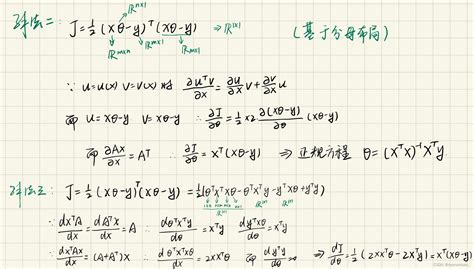 解法二: J = ½ (Xθ-y)ᵀ (Xθ-y) ⇒ ℝ¹ˣ¹ (基于分母布局)
ℝⁿˣ¹
ℝᵐˣⁿ ℝᵐˣ¹ ℝᵐˣ¹
∵ u=u(x) v=v(x) 时 ∂uᵀv/∂x = ∂u/∂x v + ∂v/∂x u
而 u=Xθ-y v=Xθ-y ∴ ∂J/∂θ = ½ ×2 ∂(Xθ-y)/∂θ (Xθ-y)
而 ∂Ax/∂x = Aᵀ ∴ ∂J/∂θ = Xᵀ(Xθ-y) ⇒ 正规方程 θ = (XᵀX)⁻¹Xᵀy
解法三: J = ½ (Xθ-y)ᵀ(Xθ-y) = ½(θᵀXᵀXθ-θᵀXᵀy-yᵀXθ+yᵀy)
∵ dxᵀA/dx = dAᵀx/dx = A ∴ dθᵀXᵀy/dθ = Xᵀy dyᵀXθ/dθ = Xᵀy
∵ dxᵀAx/dx = (A+Aᵀ)X ∴ dθᵀXᵀXθ/dθ = 2XXᵀθ 而 dyᵀy/dθ = 0 ⇒ dJ/dθ = ½(2XXᵀθ-2Xᵀy) = Xᵀ(Xθ-y)